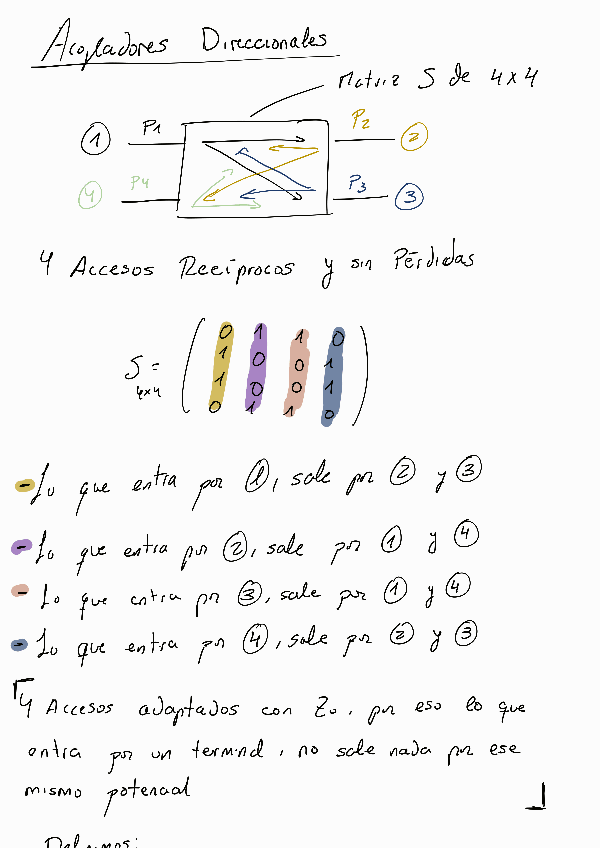 Acopladores Direccionales
Matriz S de 4x4
1 P1 P2 2
4 P4 P3 3
4 Accesos Recíprocos y sin Pérdidas
0 1 1 0
1 0 0 1
S 4x4 =
1 0 0 1
0 1 1 0
- Lo que entra por 1, sale por 2 y 3
- Lo que entra por 2, sale por 1 y 4
- Lo que entra por 3, sale por 1 y 4
- Lo que entra por 4, sale por 2 y 3
4 Accesos adaptados con Zo, por eso lo que
entra por un terminal, no sale nada por ese
mismo potencial